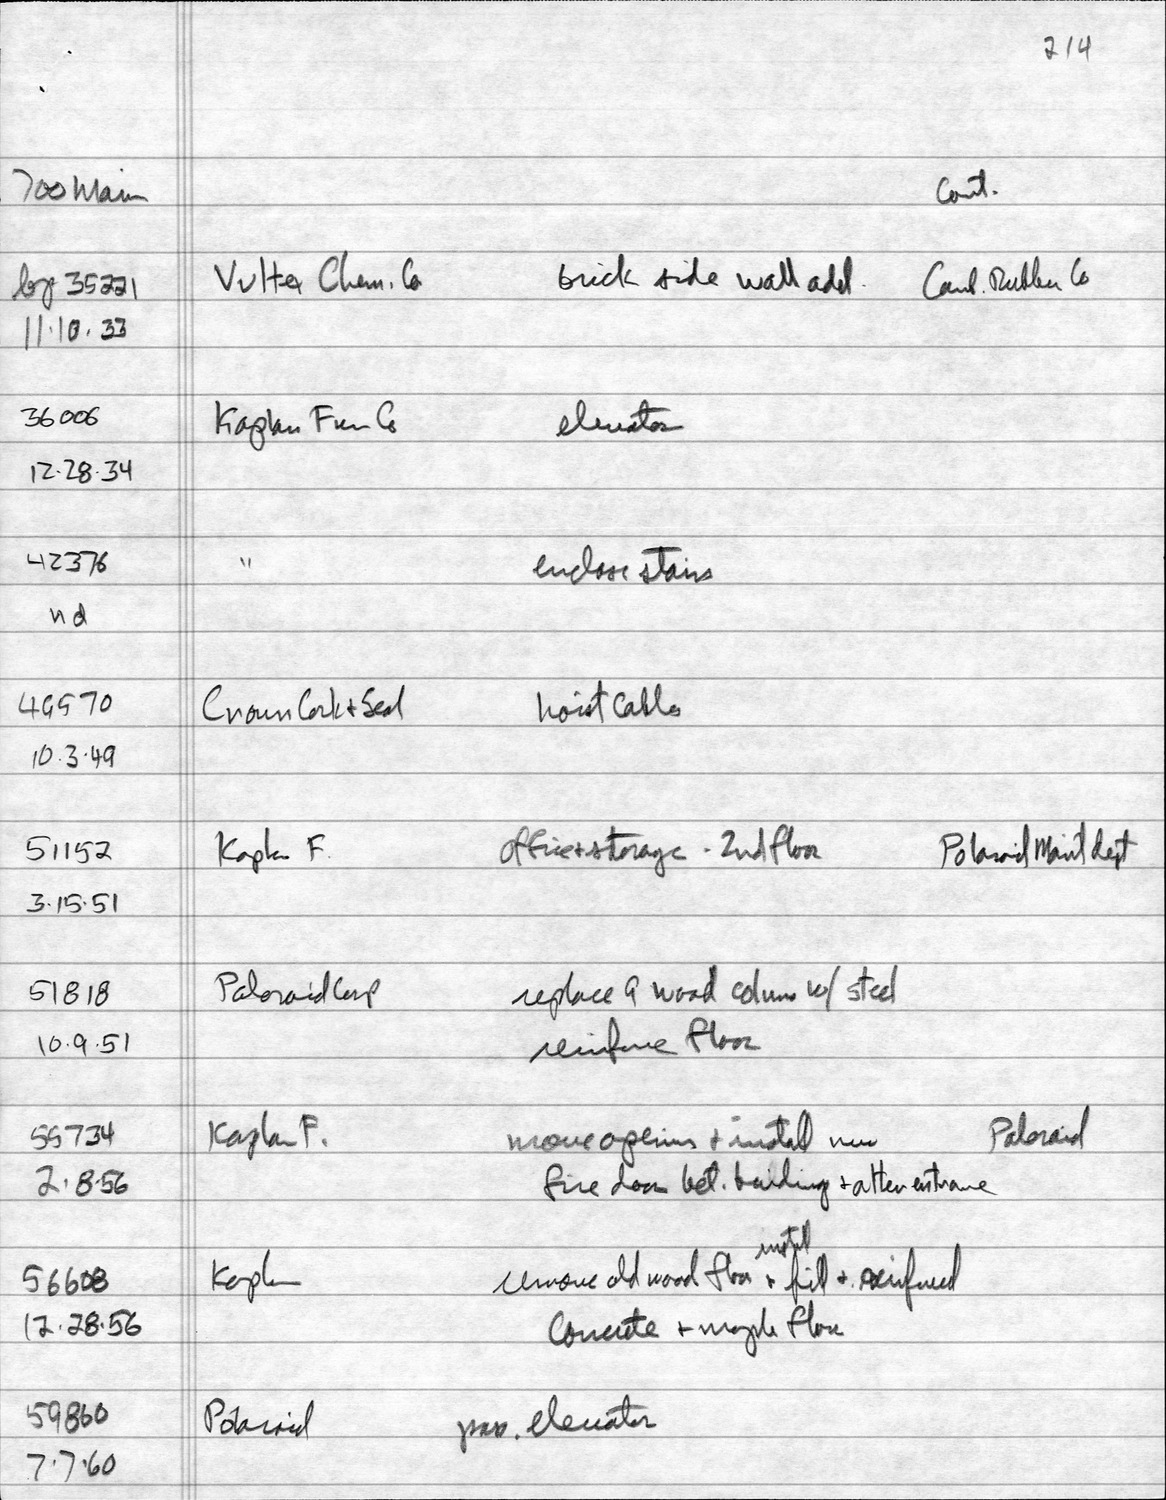 214
700 Main Cont.
bp 35221 Vultex Chem. Co brick side wall add. Camb. Rubber Co
11.10.33
36006 Kaplan Furn Co elevator
12.28.34
42376 " enclose stairs
nd
Crown Cork + Seal hoist Cable
10.3.49
51152 Kaplan F. office + storage - 2nd floor Polaroid Maint dept
3.15.51
51818 Polaroid Corp replace 9 wood column w/ steel
10.9.51 reinforce floor
55734 Kaplan F. move opening + install new Polaroid
2.8.56 fire door bet. building + alter entrance
install
56608 Kaplan remove old wood floor + fill + reinforced
12.28.56 Concrete + maple floor
59860 Polaroid pass. elevator
7.7.60